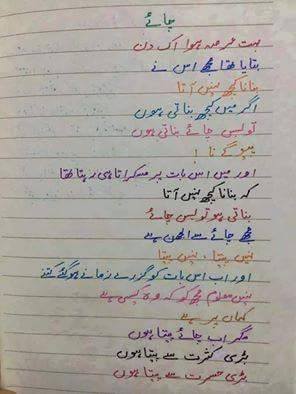 چائے
بہت عرصہ ہوا اک دن
بتایا تھا مجھے اس نے
بنانا کچھ نہیں آتا
اگر میں کچھ بناتی ہوں
تو بس چائے بناتی ہوں
پیو گے نا !
اور میں اس بات پر مسکراتا ہی رہتا تھا
کہ بنانا کچھ نہیں آتا
بناتی ہو تو بس چائے
مجھے چائے سے الجھن ہے
نہیں پیتا ، نہیں پیتا
اور اب اس بات کو گزرے زمانے ہو گئے کتنے
نہیں معلوم مجھ کو کہ وہ کیسی ہے
کہاں پر ہے
مگر اب چائے پیتا ہوں
بڑی کثرت سے پیتا ہوں
بڑی حسرت سے پیتا ہوں